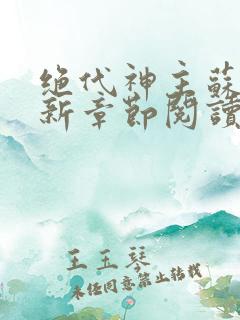 絕代神主蘇
新章節閱讀
王玉琴
未经同意禁止转载